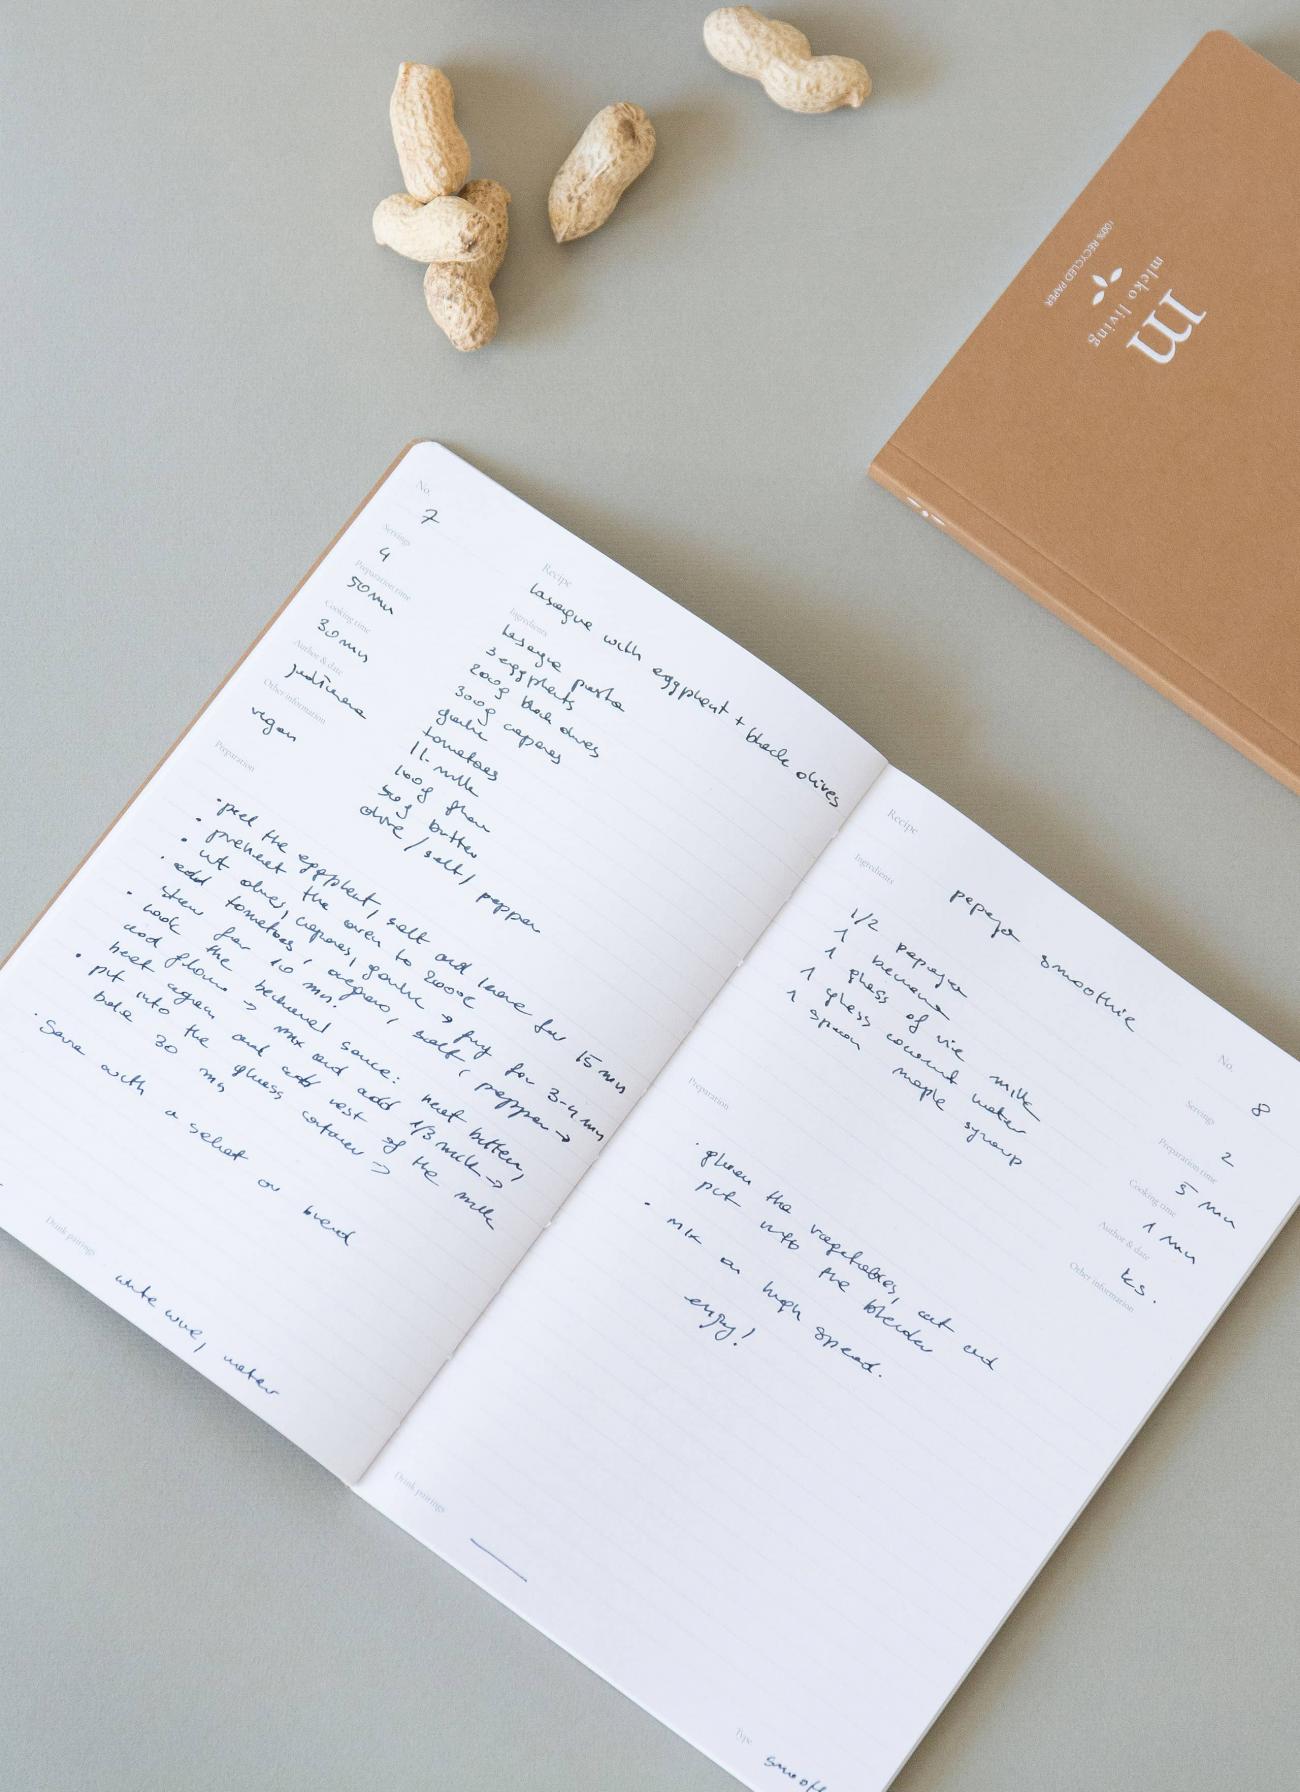 100% RECYCLED PAPER
mleko living
m
No.
7
Servings
4
Preparation time
50 min
Cooking time
30 min
Author & date
Other information
vegan
Recipe
Lasagne with eggplant + black olives
Ingredients
lasagne pasta
3 eggplants
200g black olives
300g capares
garlic
tomatoes
1 L milk
100g flour
50g butter
olive / salt / pepper
Preparation
• peel the eggplant, salt and leave for 15 min
• preheat the oven to 200°C
• cut olives, capares, garlic → fry for 3-4 min
• add tomatoes, oregano, salt, pepper →
stew for 10 min.
• cook the bechamel sauce: heat butter,
add flour → mix and add 1/3 milk →
heat again and add rest of the milk
• put into the glass container →
bake 30 min
• Serve with a salat or bread
Drink pairings
white wine, water
Recipe
papaya smoothie
Ingredients
1/2 papaya
1 banana
1 glass of rice milk
1 glass coconut water
1 spoon maple syroup
No.
8
Servings
2
Preparation time
5 min
Cooking time
1 min
Author & date
ks.
Other information
Preparation
• the vegetables, cut and
put into the blender
• mix on high speed.
enjoy!
Drink pairings
Type